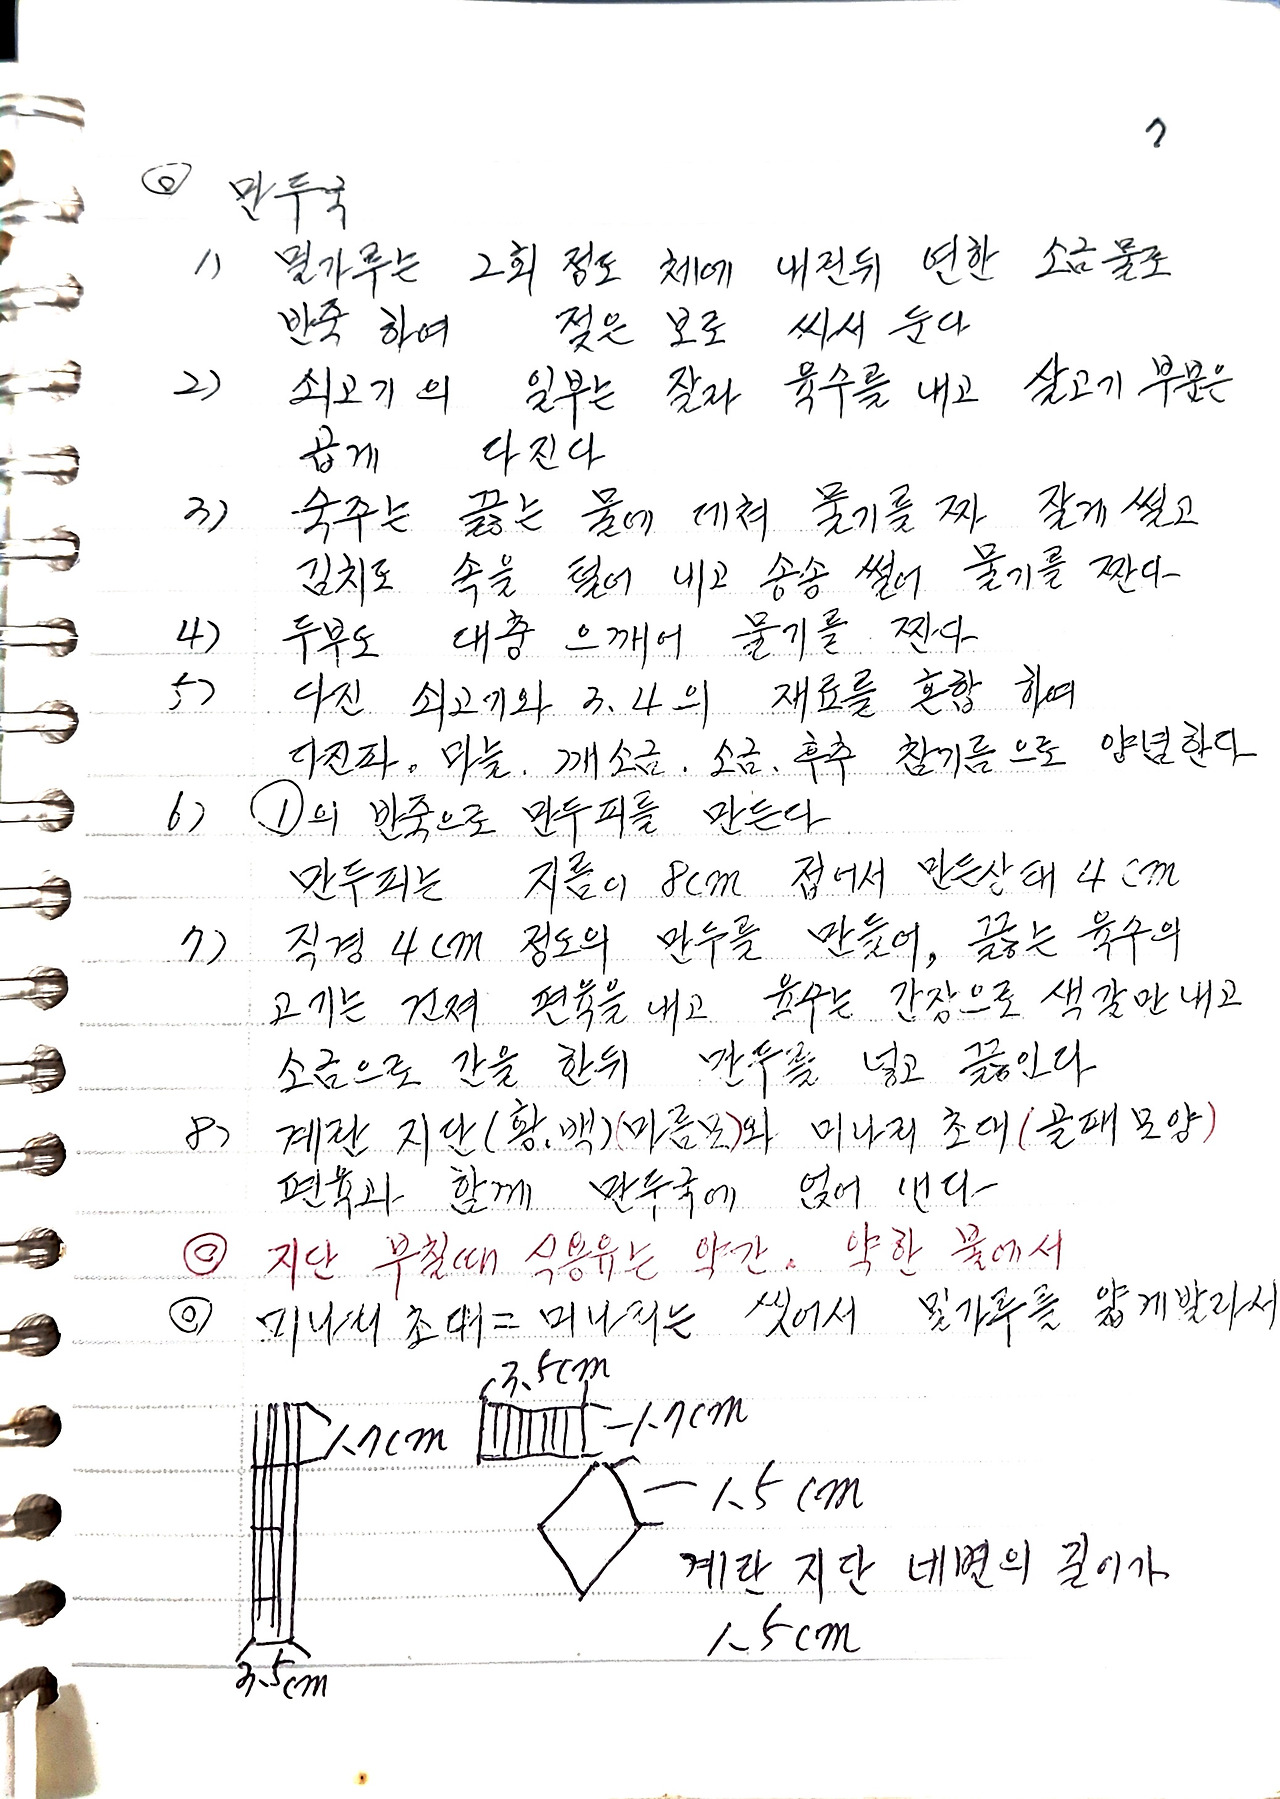 7
◎ 만두국
1) 밀가루는 2회 정도 체에 내린뒤 연한 소금물로
반죽 하여 젖은 보로 싸서 둔다
2) 쇠고기의 일부는 잘라 육수를 내고 살고기 부분은
곱게 다진다
3) 숙주는 끓는 물에 데쳐 물기를 짜 잘게 썰고
김치도 속을 털어 내고 송송 썰어 물기를 짠다
4) 두부도 대충 으깨어 물기를 짠다
5) 다진 쇠고기와 3.4의 재료를 혼합 하여
다진파. 마늘. 깨소금. 소금. 후추 참기름으로 양념한다
6) ①의 반죽으로 만두피를 만든다
만두피는 지름이 8cm 접어서 만든상태 4cm
7) 직경 4cm 정도의 만두를 만들어, 끓는 육수의
고기는 건져 편육을 내고 육수는 간장으로 색갈만 내고
소금으로 간을 한뒤 만두를 넣고 끓인다
8) 계란 지단(황.백)(마름모)와 미나리 초대(골패모양)
편육과 함께 만두국에 얹어 낸다
◎ 지단 부칠때 식용유는 약간. 약한 불에서
◎ 미나리 초대= 미나리는 씻어서 밀가루를 얇게발라서
3.5cm
1.7cm -1.7cm
1.5cm
계란 지단 네변의 길이가
1.5cm
3.5cm